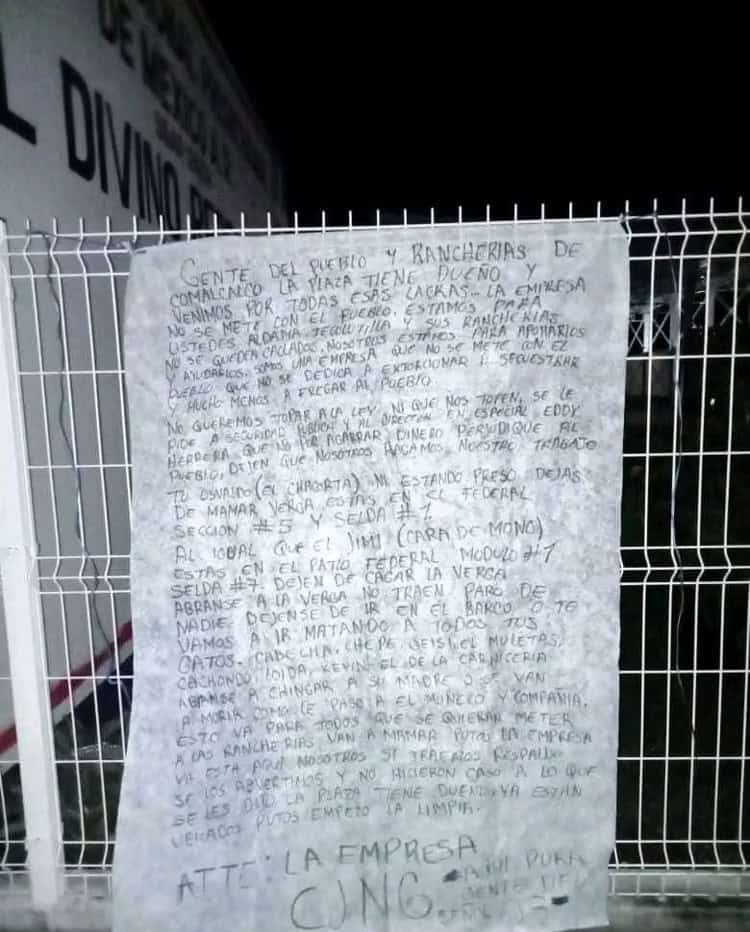 DE MEXICO A.R.
L DIVINO
GENTE DEL PUEBLO Y RANCHERIAS DE
COMALCALCO LA PLAZA TIENE DUEÑO Y
VENIMOS POR TODAS ESAS LACRAS... LA EMPRESA
NO SE METE CON EL PUEBLO, ESTAMOS PARA
USTEDES ALDAMA, TECOLUTILLA Y SUS RANCHERIAS
NO SE QUEDEN CALLADOS, NOSOTROS ESTAMOS PARA APOYARLOS
Y AYUDARLOS, SOMOS UNA EMPRESA QUE NO SE METE CON EL
PUEBLO QUE NO SE DEDICA A EXTORCIONAR Y SECUESTRAR
Y MUCHO MENOS A FREGAR AL PUEBLO.
NO QUEREMOS TOPAR A LA LEY, NI QUE NOS TOPEN, SE LE
PIDE A SEGURIDAD PUBLICA Y AL DIRECTOR EN ESPECIAL EDDY
HERRERA QUE NO POR AGARRAR DINERO PERJUDIQUE AL
PUEBLO, DEJEN QUE NOSOTROS HAGAMOS NUESTRO TRABAJO
TU OSVALDO (EL CHAGORTA) NI ESTANDO PRESO DEJAS
DE MAMAR VERGA, ESTAS EN EL FEDERAL
SECCION #5 Y SELDA #1
AL IGUAL QUE EL JIMI (CARA DE MONO)
ESTAS EN EL PATIO FEDERAL MODULO #1
SELDA #7 DEJEN DE CAGAR LA VERGA
ABRANSE A LA VERGA NO TRAEN PARO DE
NADIE DEJENSE DE IR EN EL BARCO O TE
VAMOS A IR MATANDO A TODOS TUS
GATOS. CABECHA, CHEPE, SEIS, EL MULETAS,
CACHONDO, LOIDA, KEVIN EL DE LA CARNICERIA
ABANSE A CHINGAR A SU MADRE O SE VAN
A MORIR COMO LE PASO A EL MUÑECO Y COMPAÑIA,
ESTO VA PARA TODOS QUE SE QUIERAN METER
A LAS RANCHERIAS VAN A MAMAR PUTOS LA EMPRESA
YA ESTA AQUI NOSOTROS SI TRAEMOS RESPALDO
SE LOS ADVERTIMOS Y NO HICIERON CASO A LO QUE
SE LES DIJO LA PLAZA TIENE DUEÑO, YA ESTAN
PUTOS EMPEZO LA LIMPIA.
ATTE: LA EMPRESA
CJNG. PURA
GENTE DEL